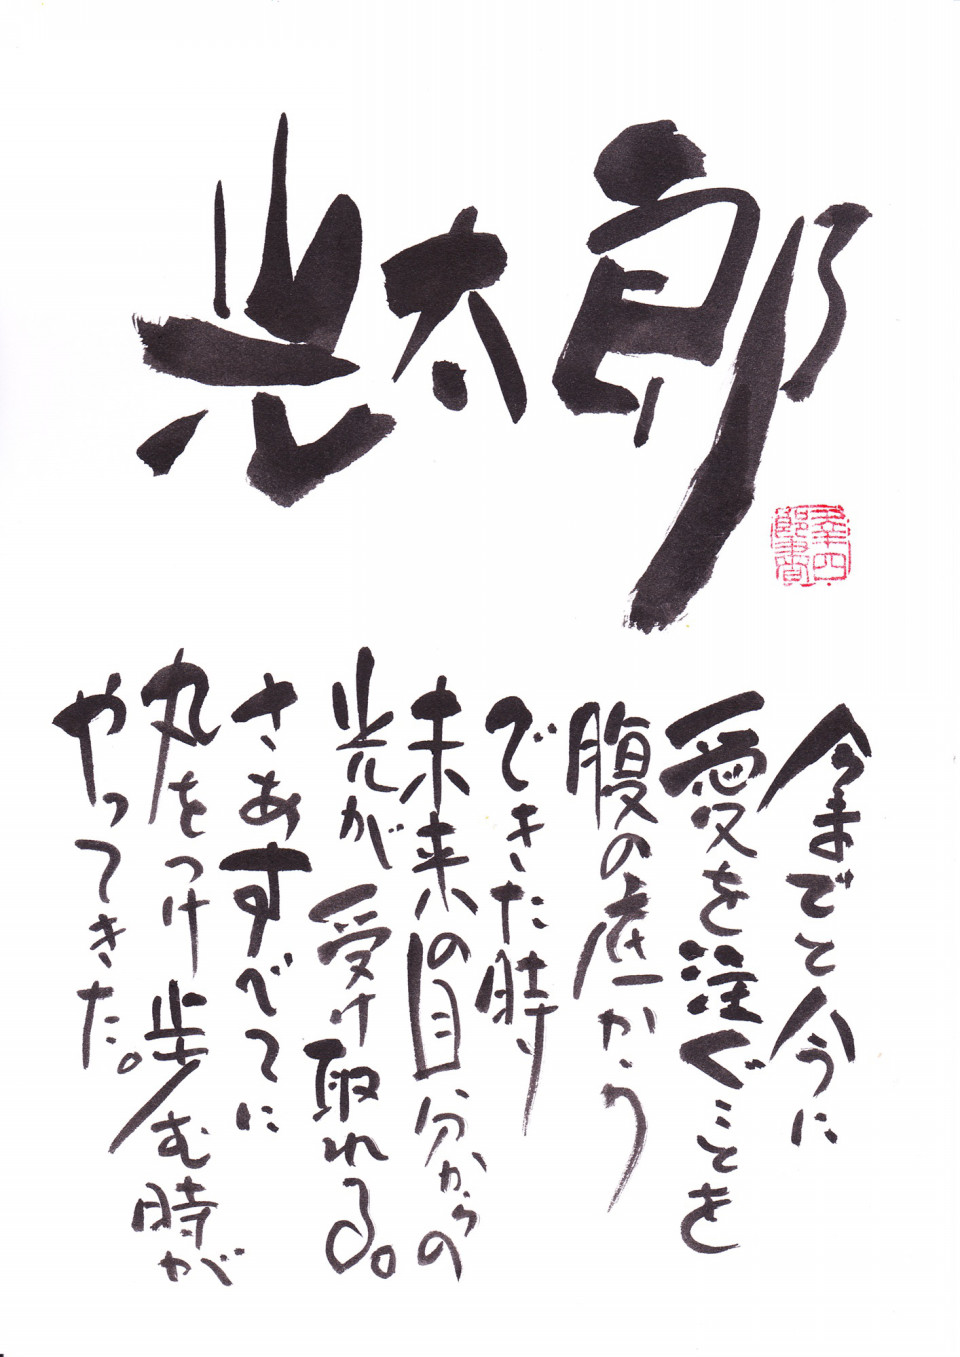 光太郎
今までと今に
愛を注ぐことを
腹の底から
できた時
未来の自分からの
光が受け取れる。
さあすべてに
丸をつけ歩む時が
やってきた。
幸四
郎書